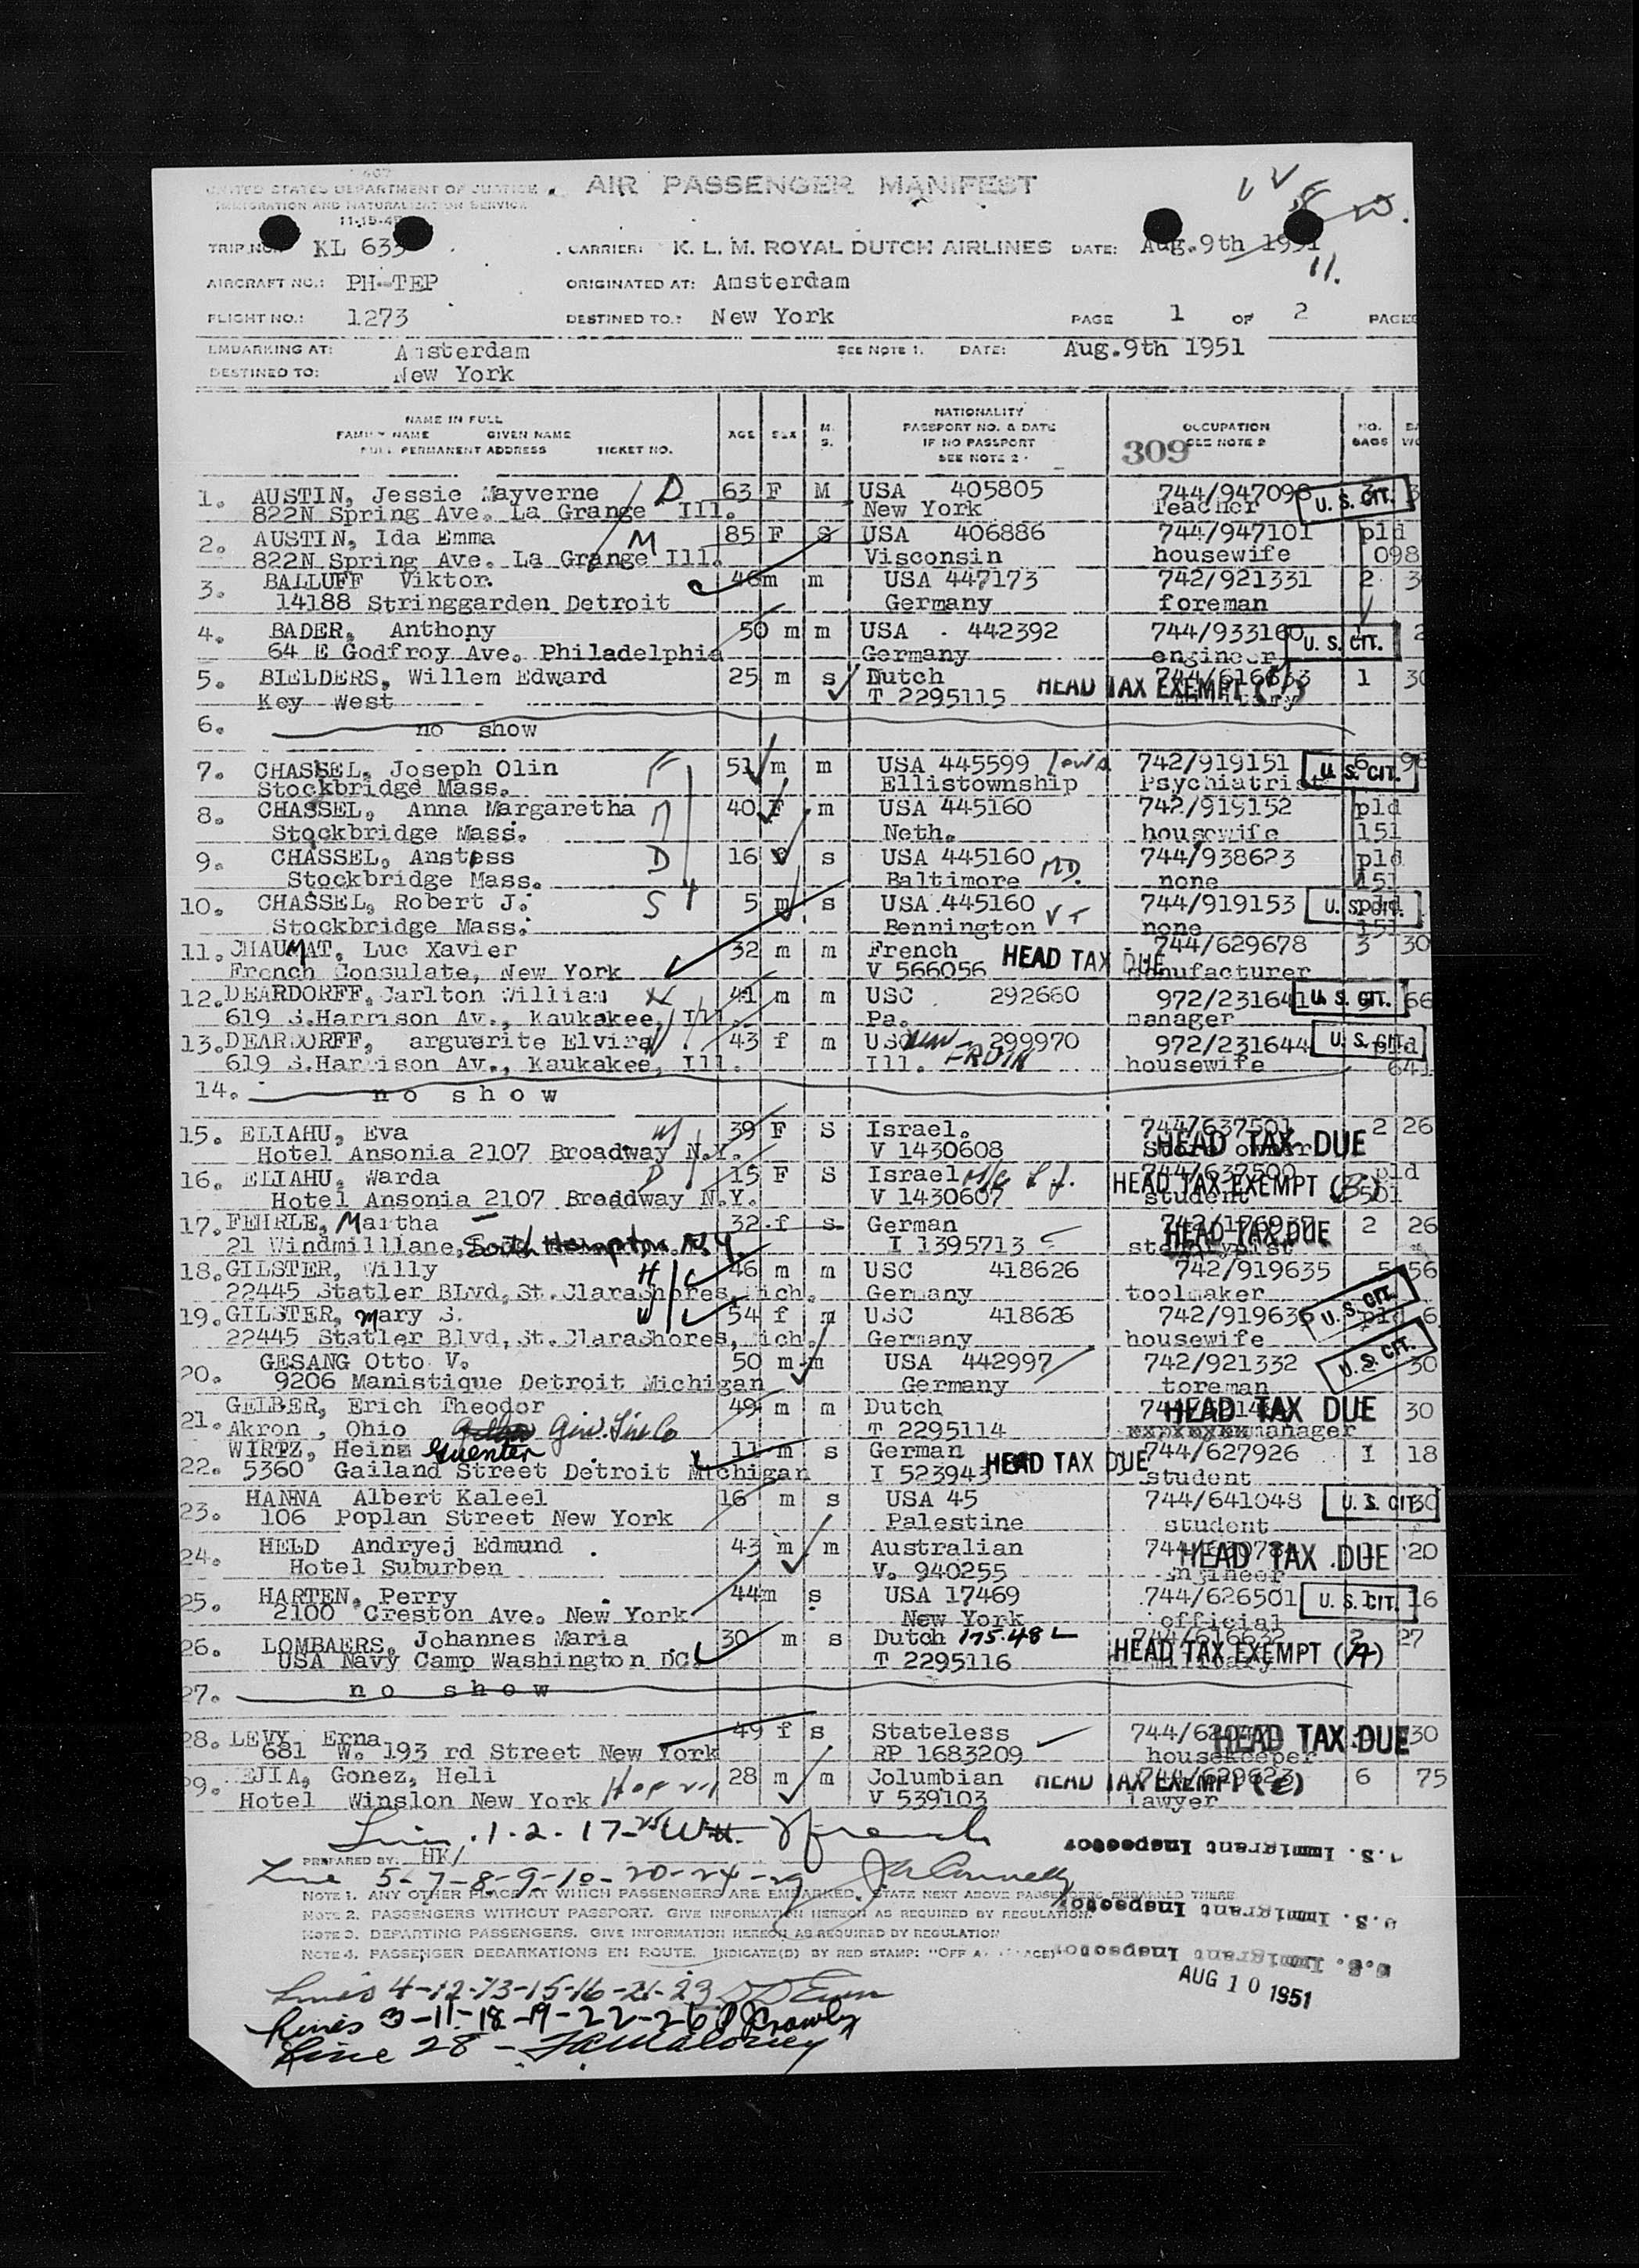 UNITED STATES DEPARTMENT OF JUSTICE
IMMIGRATION AND NATURALIZATION SERVICE
11-15-4
AIR PASSENGER MANIFEST
TRIP NO. KL 633 CARRIER: K. L. M. ROYAL DUTCH AIRLINES DATE: Aug. 9th 1951
11.
AIRCRAFT NO.: PH-TEP ORIGINATED AT: Amsterdam
FLIGHT NO.: 1273 DESTINED TO.: New York PAGE 1 OF 2 PAGES
EMBARKING AT: Amsterdam SEE NOTE 1. DATE: Aug. 9th 1951
DESTINED TO: New York
NAME IN FULL
FAMILY NAME GIVEN NAME
FULL PERMANENT ADDRESS TICKET NO.
AGE SEX M. S.
NATIONALITY
PASSPORT NO. & DATE
IF NO PASSPORT
SEE NOTE 2
OCCUPATION
SEE NOTE 2
309
NO. BAGS
1. AUSTIN, Jessie Mayverne D 63 F M USA 405805 744/947098 U. S. CIT.
822N Spring Ave. La Grange Ill. New York Teacher
2. AUSTIN, Ida Emma M 85 F S USA 406886 744/947101 pld
822N Spring Ave. La Grange Ill. Visconsin housewife 098
3. BALLUFF Viktor. 46 m m USA 447173 742/921331 2 3
14188 Stringgarden Detroit Germany foreman
4. BADER, Anthony 50 m m USA . 442392 744/933160 U. S. CIT. 2
64 E Godfroy Ave. Philadelphia Germany engineer
5. BIELDERS, Willem Edward 25 m s Dutch 1 30
Key West T 2295115 HEAD TAX EXEMPT
6. no show
7. CHASSEL, Joseph Olin 51 m m USA 445599 Iowa 742/919151 U. S. CIT.
Stockbridge Mass. Ellistownship Psychiatrist
8. CHASSEL, Anna Margaretha 40 F m USA 445160 742/919152 pld
Stockbridge Mass. Neth. housewife 151
9. CHASSEL, Anstess D 16 f s USA 445160 744/938623 pld
Stockbridge Mass. Baltimore MD. none 151
10. CHASSEL, Robert J. S 5 m s USA 445160 744/919153 U. S. CIT. pld
Stockbridge Mass. Bennington VT none 151
11. CHAUMAT, Luc Xavier 32 m m French HEAD TAX DUE 744/629678 3 30
French Consulate, New York V 566056 manufacturer
12. DEARDORFF, Carlton William 41 m m USC 292660 972/231641 U. S. CIT. 66
619 S.Harrison Av., Kaukakee, Ill. Pa. manager
13. DEARDORFF, arguerite Elvira 43 f m USC 299970 972/231644 U. S. CIT. pld
619 S.Harrison Av., Kaukakee, Ill. Ill. housewife 641
14. no show
15. ELIAHU, Eva W 39 F S Israel. 744/637501 HEAD TAX DUE 2 26
Hotel Ansonia 2107 Broadway N.Y. V 1430608
16. ELIAHU, Warda D 15 F S Israel 744/637500 HEAD TAX EXEMPT pld
Hotel Ansonia 2107 Broadway N.Y. V 1430607 student 501
17. FEHRLE, Martha 32 f s German HEAD TAX DUE 2 26
21 Windmilllane, South Hampton N.Y. I 1395713
18. GILSTER, Willy H 46 m m USC 418626 742/919635 56
22445 Statler BLvd, St.ClaraShores, ich. Germany toolmaker
19. GILSTER, Mary S. W 54 f m USC 418626 742/919636 U. S. CIT. pld
22445 Statler Blvd, St.ClaraShores, ich. Germany housewife
20. GESANG Otto V. 50 m m USA 442997 742/921332 U. S. CIT. 30
9206 Manistique Detroit Michigan Germany foreman
21. GELBER, Erich Theodor 49 m m Dutch HEAD TAX DUE 30
Akron , Ohio T 2295114 manager
22. WIRTZ, Heinz Guenter 11 m s German HEAD TAX DUE 744/627926 1 18
5360 Gailand Street Detroit Michigan I 523943 student
23. HANNA Albert Kaleel 16 m s USA 45 744/641048 U. S. CIT. 30
106 Poplan Street New York Palestine student
24. HELD Andryej Edmund . 43 m m Australian HEAD TAX DUE 20
Hotel Suburben V. 940255 engineer
25. HARTEN, Perry 44 m s USA 17469 744/626501 U. S. CIT. 16
2100 Creston Ave. New York New York official
26. LOMBAERS, Johannes Maria 30 m s Dutch 175.48 HEAD TAX EXEMPT (A) 2 27
USA Navy Camp Washington DC. T 2295116 military
27. no show
28. LEVY Erna 49 f s Stateless HEAD TAX DUE 30
681 W. 193 rd Street New York RP 1683209 housekeeper
29. EJIA, Gonez, Heli 28 m m Columbian HEAD TAX EXEMPT 744/629623 6 75
Hotel Winslon New York V 539103 lawyer
PREPARED BY: HF/
U.S. Immigrant Inspector
Line 5-7-8-9-10-20-24-29
NOTE 1. ANY OTHER PLACE AT WHICH PASSENGERS ARE EMBARKED. STATE NEXT ABOVE PASSENGERS EMBARKED THERE
NOTE 2. PASSENGERS WITHOUT PASSPORT. GIVE INFORMATION HEREON AS REQUIRED BY REGULATION.
U.S. Immigrant Inspector
NOTE 3. DEPARTING PASSENGERS. GIVE INFORMATION HEREON AS REQUIRED BY REGULATION
NOTE 4. PASSENGER DEBARKATIONS EN ROUTE. INDICATE(D) BY RED STAMP: "OFF AT (PLACE)
U.S. Immigrant Inspector
AUG 10 1951
Lines 4-12-13-15-16-21-23
Lines 3-11-18-19-22-26
Line 28 -